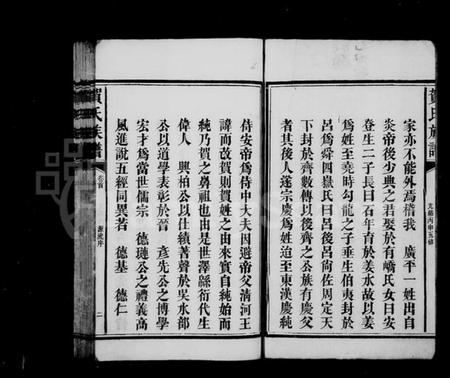 賀氏族譜
光緒丙申五修
家亦不能外焉稽我　廣平一姓出自
炎帝後少典之君娶於有嶠氏女曰安
登生二子長曰石年育於姜水故以姜
爲姓至堯時勾龍之子垂生伯夷封於
呂爲舜四嶽氏曰呂後呂尙佐周定天
下封於齊數傳以後齊之公族有慶父
者其後人遂宗慶爲姓迨至東漢慶純
侍安帝爲侍中大夫因避帝父清河王
諱而改賀則賀姓之由來實自純始而
純乃賀之鼻祖也由是世澤緜衍代生
偉人　興柏公以仕績著聲於吳水部
公以道學表彰於晉　彥先公之博學
宏才爲當世儒宗　德璉公之禮義高
風進說五經同異者　德基　德仁
賀氏族譜
卷首
源流序
二